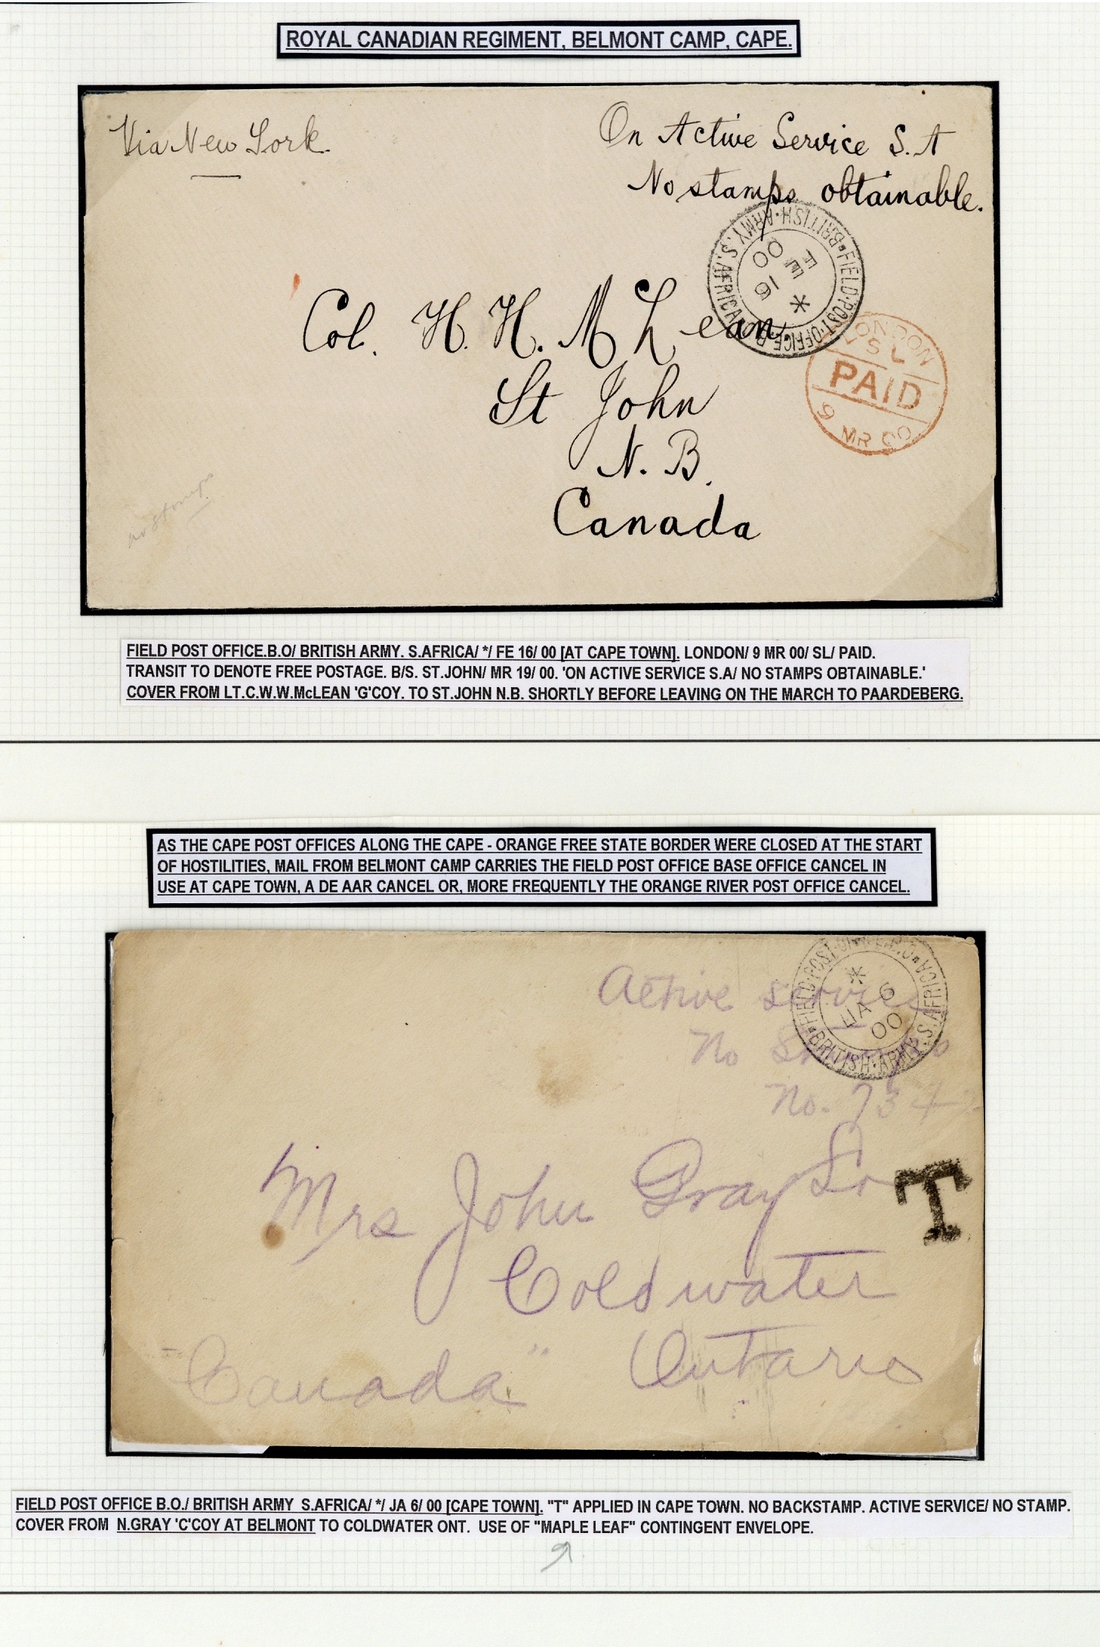 ROYAL CANADIAN REGIMENT, BELMONT CAMP, CAPE.
Via New York
On Active Service S.A
No stamps obtainable.
FIELD·POST·OFFICE·B.O.
BRITISH·ARMY·S.AFRICA
*
FE 16
00
LONDON
S L
PAID
9 MR 00
Col. H. H. McLean.
St John
N. B.
Canada
no stamps
FIELD POST OFFICE.B.O/ BRITISH ARMY. S.AFRICA/ */ FE 16/ 00 [AT CAPE TOWN]. LONDON/ 9 MR 00/ SL/ PAID.
TRANSIT TO DENOTE FREE POSTAGE. B/S. ST.JOHN/ MR 19/ 00. 'ON ACTIVE SERVICE S.A/ NO STAMPS OBTAINABLE.'
COVER FROM LT.C.W.W.McLEAN 'G'COY. TO ST.JOHN N.B. SHORTLY BEFORE LEAVING ON THE MARCH TO PAARDEBERG.
AS THE CAPE POST OFFICES ALONG THE CAPE - ORANGE FREE STATE BORDER WERE CLOSED AT THE START
OF HOSTILITIES, MAIL FROM BELMONT CAMP CARRIES THE FIELD POST OFFICE BASE OFFICE CANCEL IN
USE AT CAPE TOWN, A DE AAR CANCEL OR, MORE FREQUENTLY THE ORANGE RIVER POST OFFICE CANCEL.
Active service
No
No. 734
FIELD·POST·OFFICE·B.O.
BRITISH·ARMY·S.AFRICA
*
JA 6
00
T
Mrs John Gray Sr
Coldwater
Ontario
"Canada"
FIELD POST OFFICE B.O./ BRITISH ARMY S.AFRICA/ */ JA 6/ 00 [CAPE TOWN]. "T" APPLIED IN CAPE TOWN. NO BACKSTAMP. ACTIVE SERVICE/ NO STAMP.
COVER FROM N.GRAY 'C'COY AT BELMONT TO COLDWATER ONT. USE OF "MAPLE LEAF" CONTINGENT ENVELOPE.